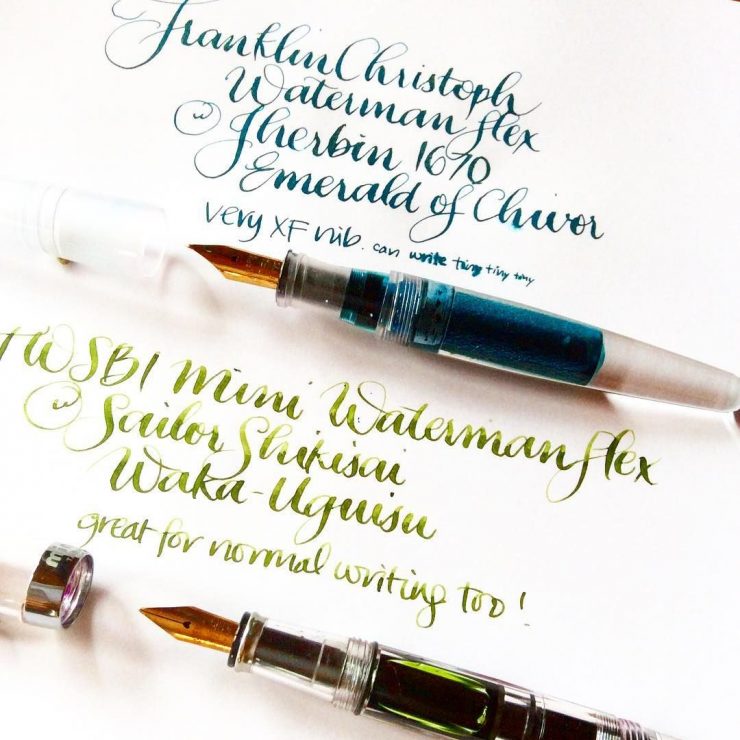 FranklinChristoph
Waterman flex
w Jherbin 1670
Emerald of Chivor
very XF nib. can write tiny tiny tiny
TWSBI mini Waterman flex
w Sailor Shikisai
Waka-Uguisu
great for normal writing too!